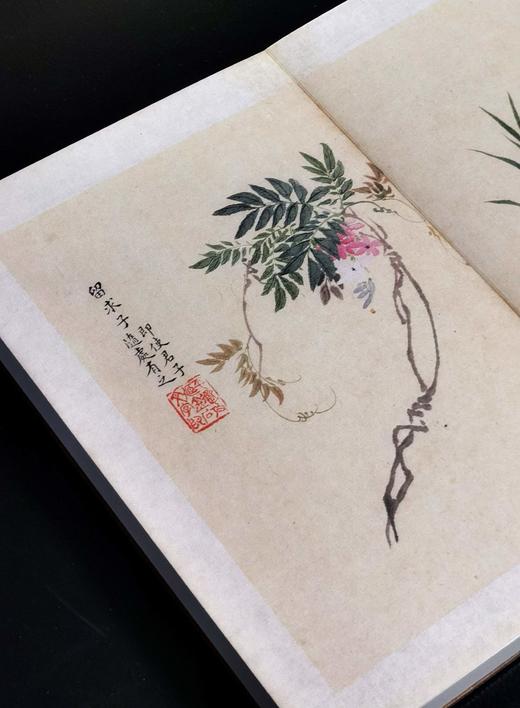 留求子
即使君子
隨處有之